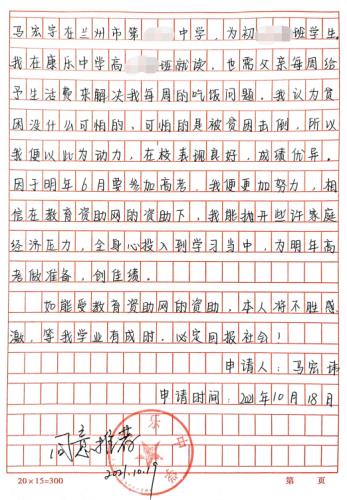 马宏宇在兰州市第 中学，为初 班学生。
我在康乐中学高 班就读，也需父亲每周给
予生活费来解决我每周的吃饭问题。我认为贫
困没什么可怕的，可怕的是被贫困击倒，所以
我便以此为动力，在校表现良好，成绩优异。
因于明年6月要参加高考，我便更加努力，相
信在教育资助网的资助下，我能抛开些许家庭
经济压力，全身心投入到学习当中，为明年高
考做准备，创佳绩。
如能受教育资助网的资助，本人将不胜感
激，等我学业有成时，必定回报社会！
申请人：马宏祎
申请时间：2021年10月18日
同意推荐
2021.10.19
乐中学
20×15=300
第 页